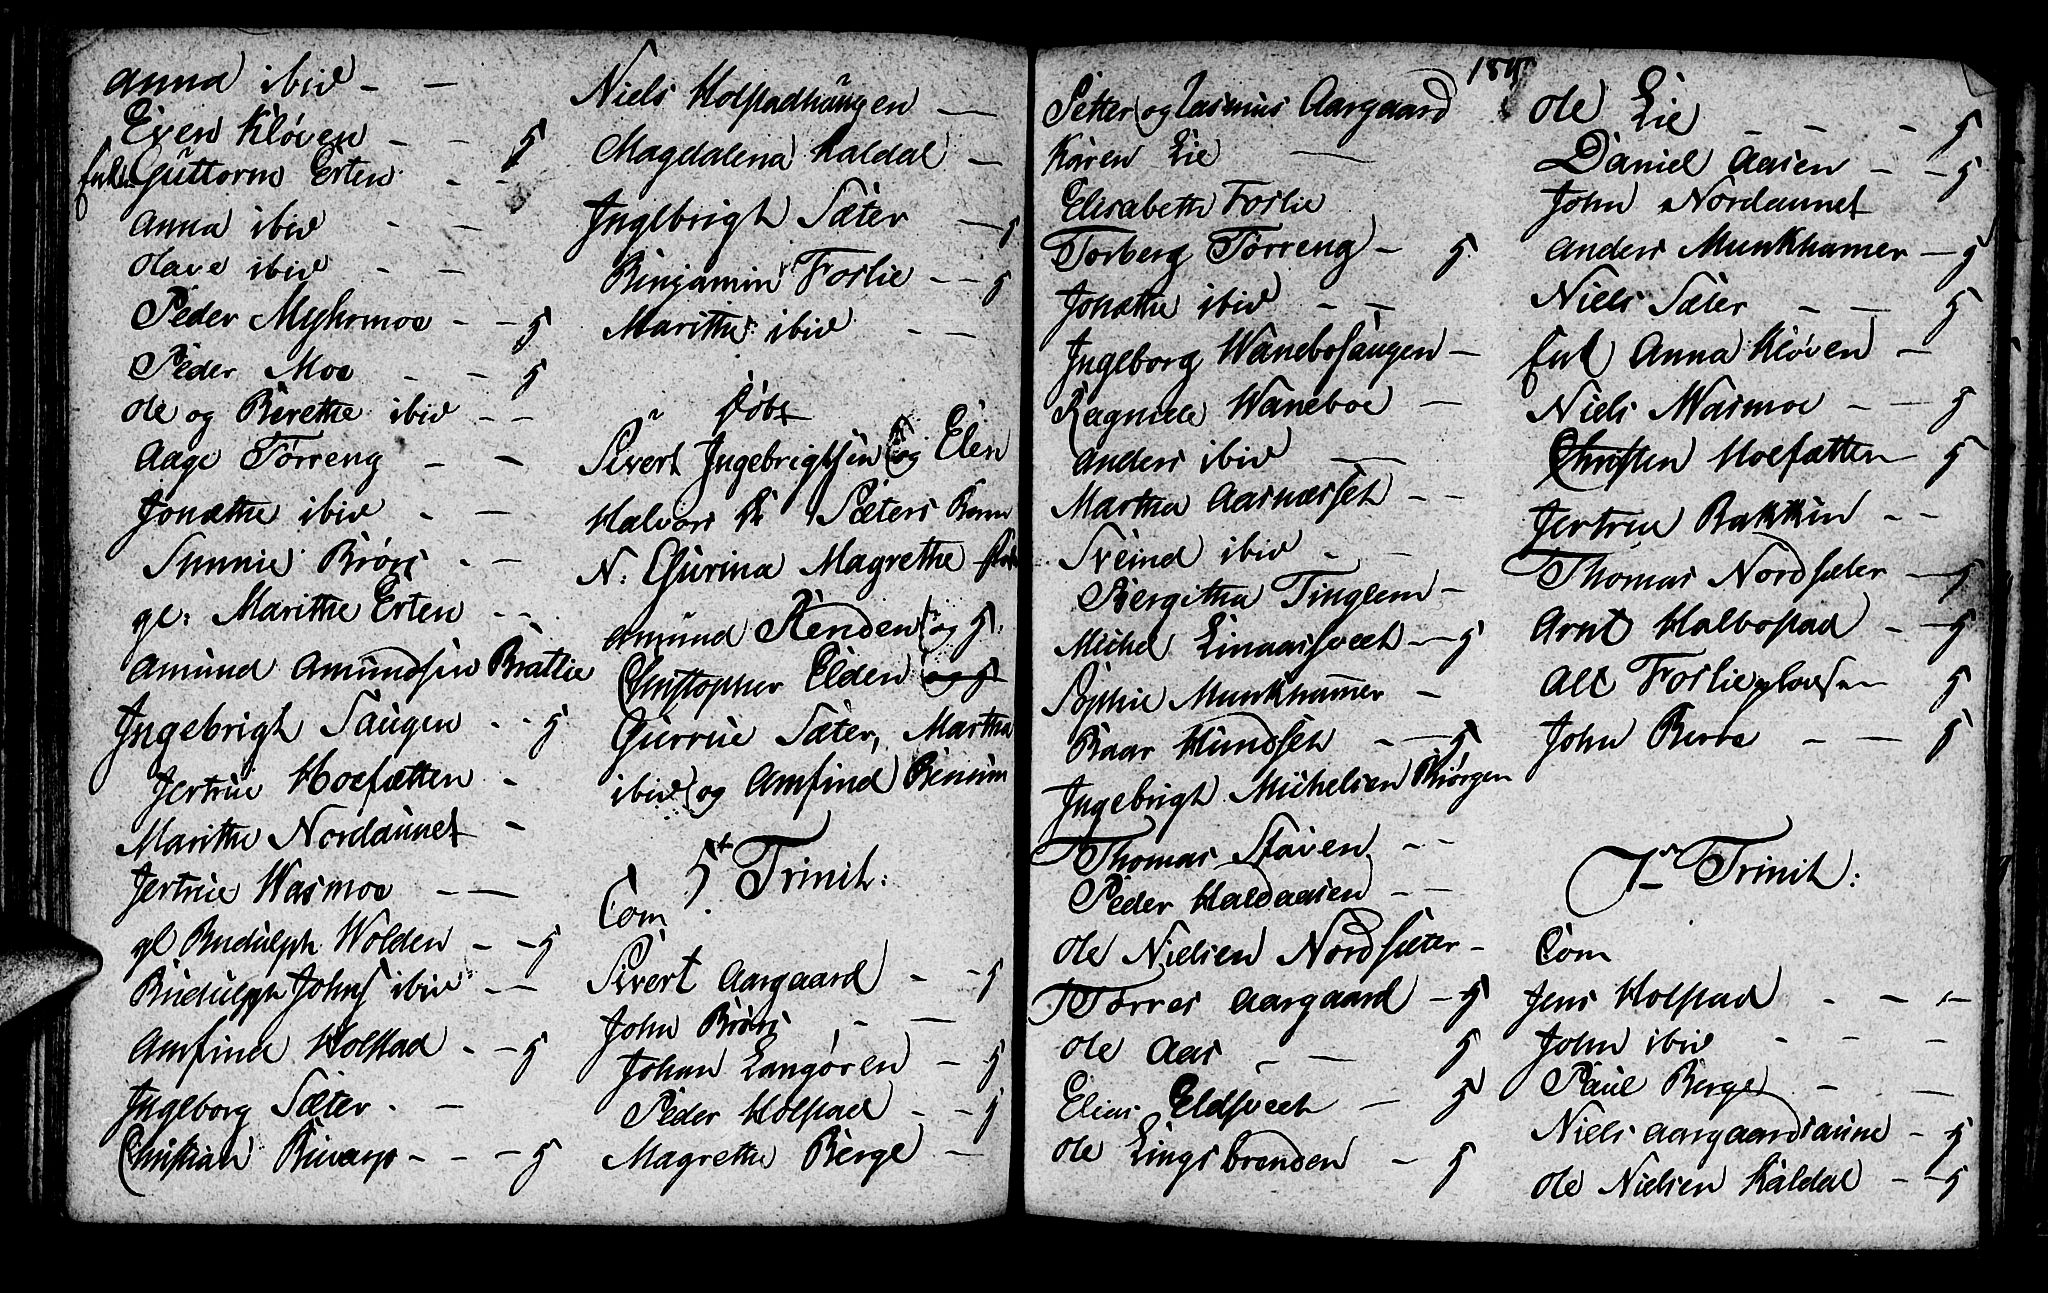 Anna ibid - -
Even Kløven - - 5
Enke Guttorm Erten - -
Anna ibid - -
Olave ibid - -
Peder Myhrmoe - - 5
Peder Moe - - 5
Ole og Berethe ibid - -
Aage Torreng - -
Jonæthe ibid - -
Sunnie Brørs - -
gl: Marithe Erten - -
Amund Amundsen Brattlie
Ingebrigt Saugen - - 5
Jertrue Hoefætten -
Marithe Nordaunet -
Jertrue Wasmoe - -
gl Rudulph Wolden - - 5
Rudulph Johns ibid - -
Amfind Holstad - - 5
Ingeborg Sæter - -
Christian - - - 5
Niels Holstadhaugen -
Magdalena Kaldal -
Ingebrigt Sæter - 5
Benjamin Forlie - - 5
Marithe ibid - -
Døbt
Sivert Ingebrigtsen og Elen
Halvors Sæters Barn
N: Gurina Magrethe
Amund Stenden og 5.
Christopher Elden og 5
Gurrue Sæter, Martha
ibid og Amfind
5t Trinit:
Com
Sivert Aargaard - - 5
John Brørs - -
Johan Langøren - 5
Peder Holstad - - 5
Magrethe Berge -
Petter og Rasmus Aargaard
Karen Lie -
Elisabeth Forlie
Torberg Torreng - 5
Jonæthe ibid - -
Ingeborg Wanebosaugen -
Ragnille Waneboe -
Anders ibid -
Martha Aasnæsset - -
Sveind ibid - -
Bergitha Tinglem -
Michel Linaasveet - 5
Sophie Munkhammer -
Baar Hundset - - 5
Ingebrigt Michelsen Biørgen
Thomas Støven - -
Peder Kaldaasen - -
Ole Nielsen Nordsæter -
Torres Aargaard - 5
Ole Aas - - 5
Elias Eldsveet - 5
Ole Lingsbrenden - 5
Ole Lie - - - 5
Daniel Aasen - - 5
John Nordaunet
Anders Munkhamer - 5
Niels Sæter - - 5
Enk Anna Kløven -
Niels Wasmoe - - 5
Christen Hoefætten - 5
Jertrue Bakken - -
Thomas Nordsæter - 5
Arnt Halbostad - - 5
Ale Forlie 5
John Berre - - 5
7de Trinit:
Com
Jens Holstad - - -
John ibid - - -
Paul Berge - -
Niels Aargaardsaune - 5
Ole Nielsen Kaldal - - 5